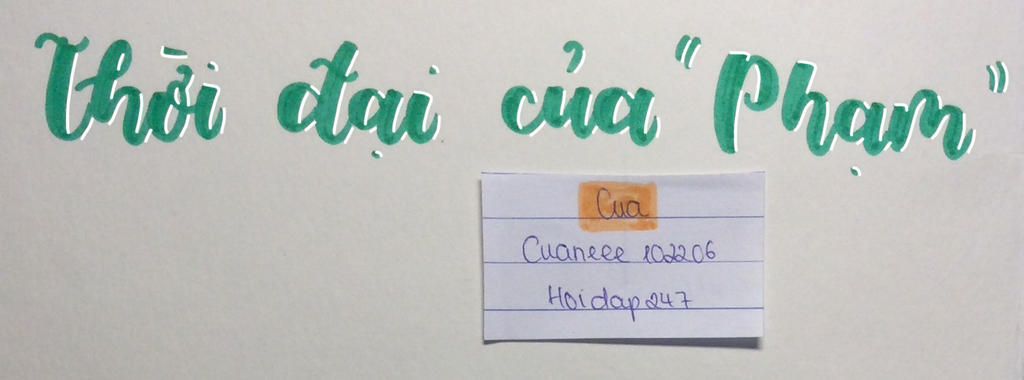 Thời đại của "Phạm"
Cua
Cuaneee 102206
Hoidap247